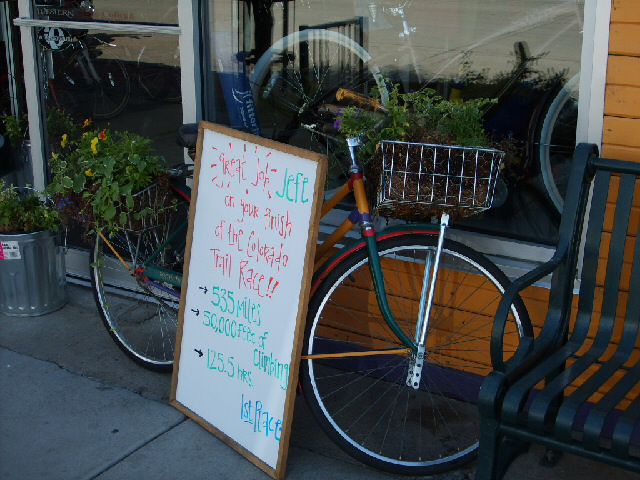 great job, Jefe
on your finish
of the Colorado
Trail Race!!
→ 535 Miles
→ 50,000 feet of
climbing
→ 125.5 hrs.
1st Place